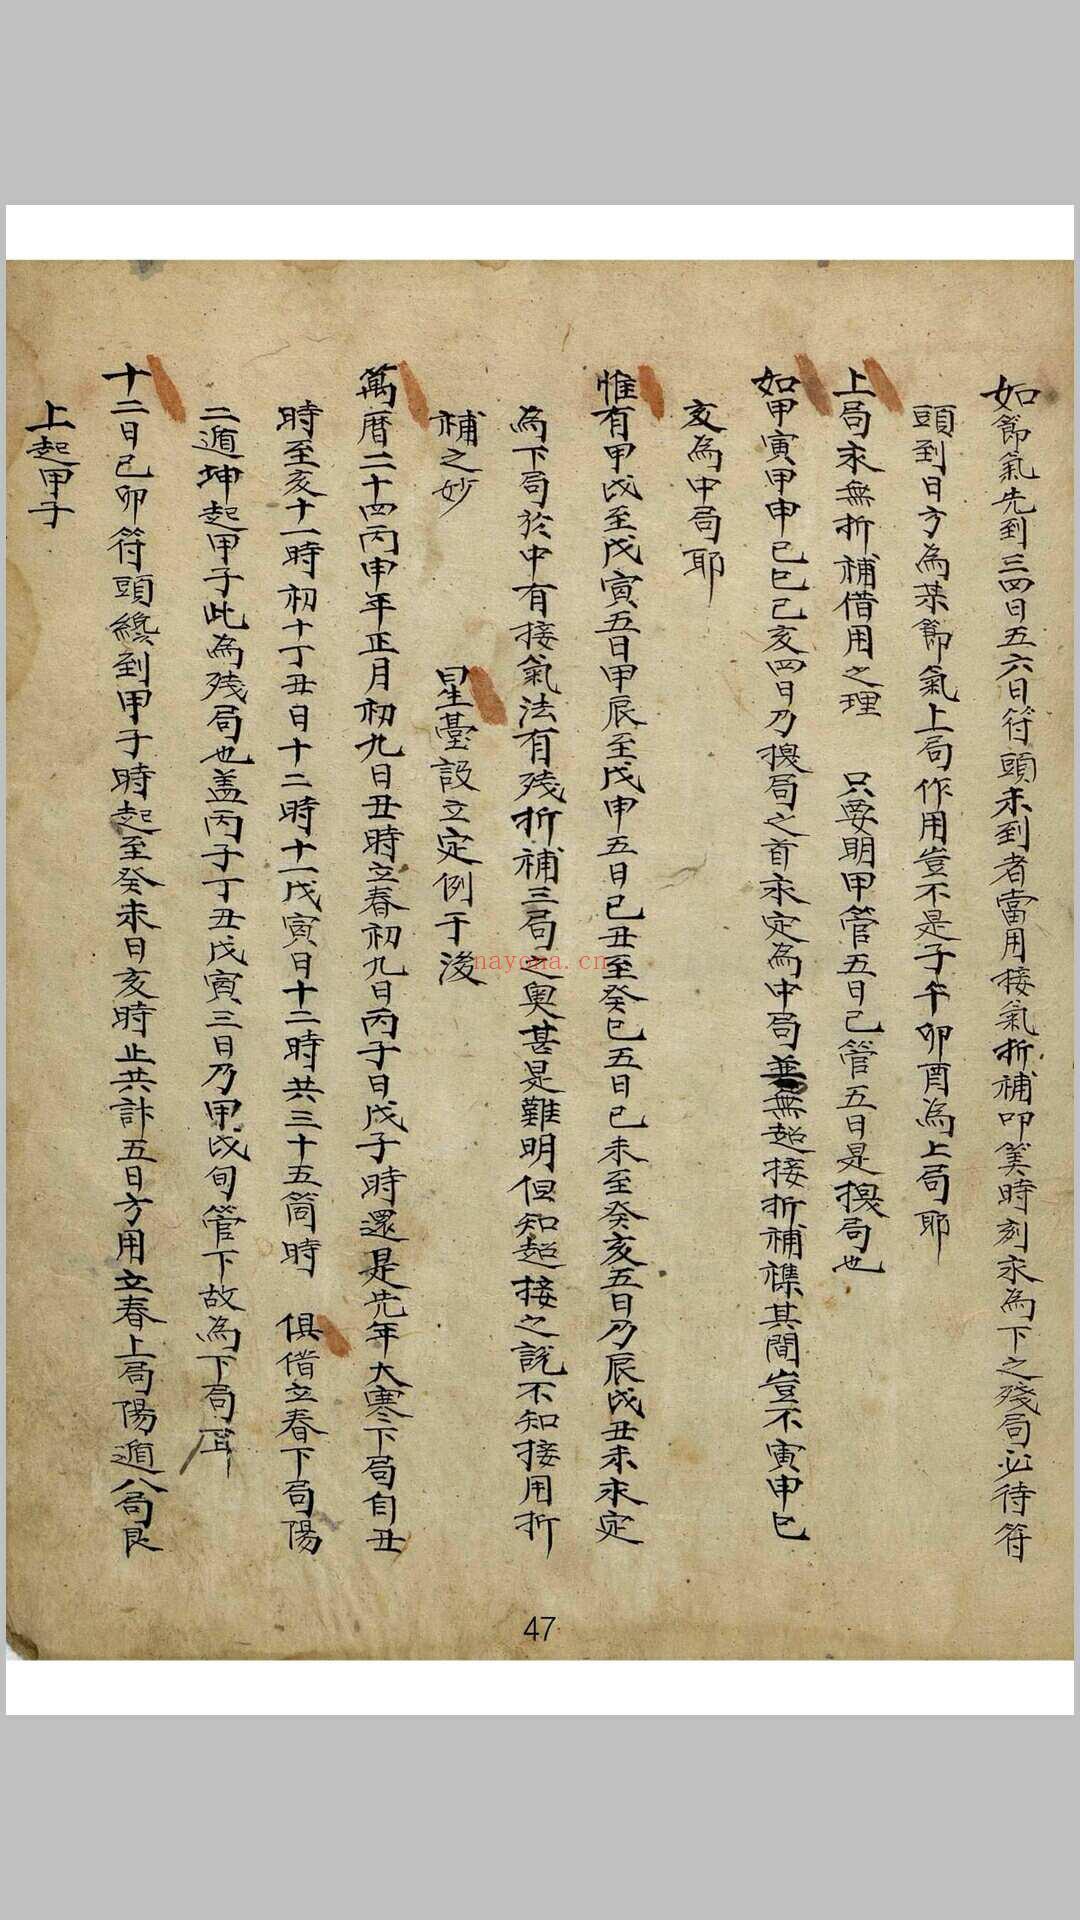 如節氣先到三四日五六日符頭未到者當用接氣折補叩筭時刻求為下之殘局必待符
頭到日方為某節氣上局作用豈不是子午卯酉為上局耶
上局永無折補借用之理 只要明甲管五日己管五日是換局也
如甲寅甲申己巳己亥四日乃換局之首永定為中局並無超接折補襍其間豈不寅申巳
亥為中局耶
惟有甲戌至戊寅五日甲辰至戊申五日己丑至癸巳五日己未至癸亥五日乃辰戌丑未永定
為下局於中有接氣法有残折補三局之奧甚是難明但知超接之說不知接用折
補之妙 星臺設立定例于後
萬曆二十四丙申年正月初九日丑時立春初九日丙子日戊子時還是先年大寒下局自丑
時至亥十一時初十丁丑日十二時十一戊寅日十二時共三十五箇時 俱借立春下局陽
二遁坤起甲子此為残局也盖丙子丁丑戊寅三日乃甲戌旬管下故為下局耳
十二日己卯符頭纔到甲子時起至癸未日亥時止共計五日方用立春上局陽遁八局艮
上起甲子
nayona.cn
47